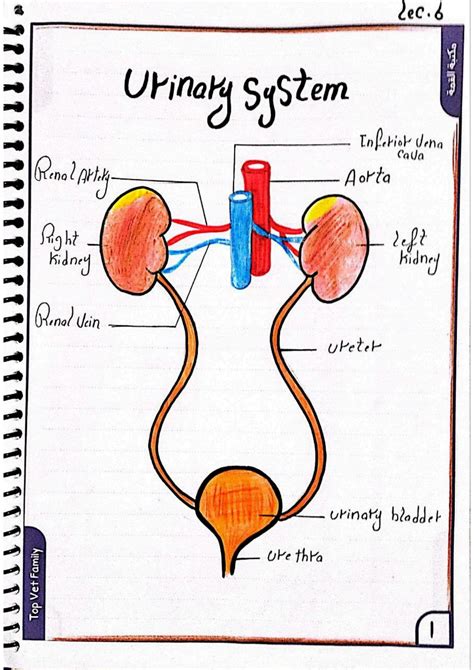 Lec. 6
مكتبة القمة
Urinary System
Inferior Vena
Cava
Renal Artery
Aorta
Right
Kidney
Left
Kidney
Renal Vein
Ureter
Urinary bladder
Urethra
Top Vet Family
1